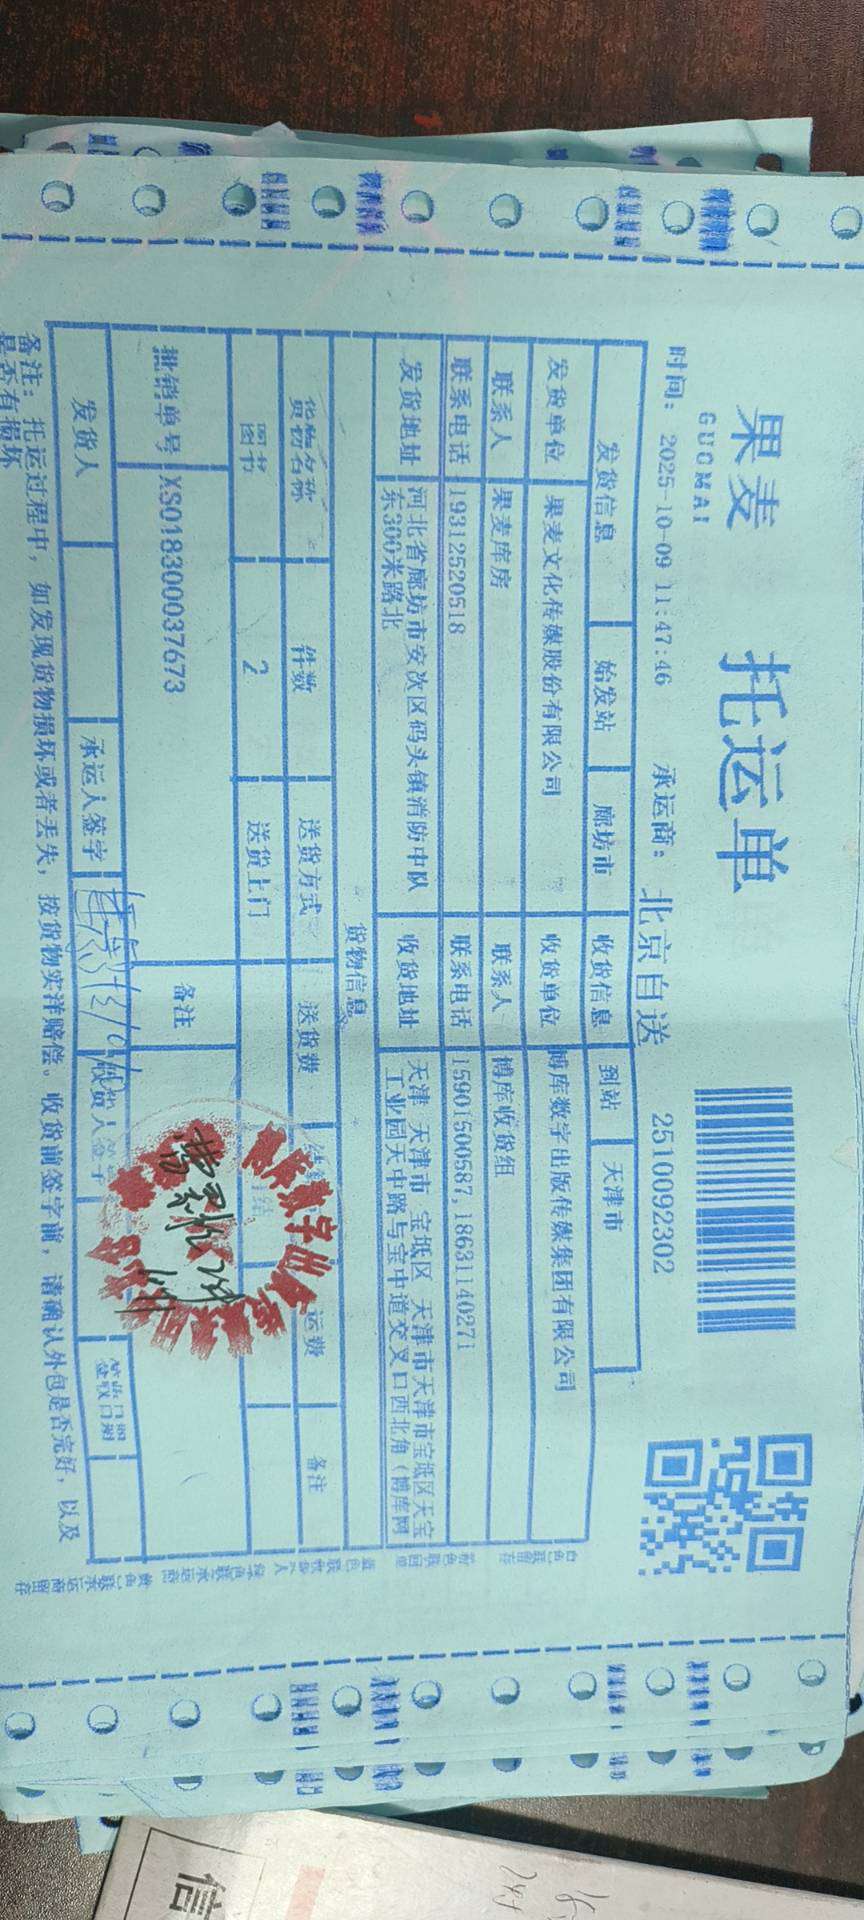 果麦
GUOMAI
托运单
时间： 2025-10-09 11:47:46 承运商： 北京自送 2510092302
发货信息 始发站 廊坊市 收货信息 到站 天津市
发货单位 果麦文化传媒股份有限公司 收货单位 博库数字出版传媒集团有限公司
联系人 果麦库房 联系人 博库收货组
联系电话 19312520518 联系电话 15901500587,18631140271
发货地址 河北省廊坊市安次区码头镇消防中队东300米路北 收货地址 天津 天津市 宝坻区 天津市天津市宝坻区天宝工业园天中路与宝中道交叉口西北角（博库网
货物信息
货物名称 件数 送货方式 送货费 运费 备注
图书 2 送货上门
批销单号 XS018300037673 备注
发货人 承运人签字 收货人签字 签收日期
备注： 托运过程中，如发现货物损坏或者丢失，按货物实洋赔偿。收货前签字前，请确认外包是否完好，以及
是否有损坏
信